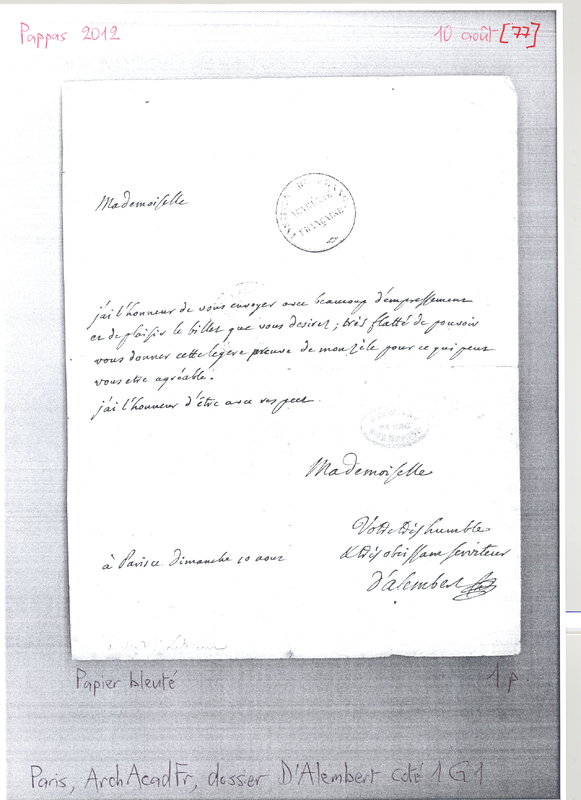 Pappas 2012
10 août [77]
Mademoiselle
ACADÉMIE
FRANÇAISE
j'ai l'honneur de vous envoyer avec beaucoup d'empressement
et de plaisir le billet que vous desirez; très flatté de pouvoir
vous donner cette legere preuve de mon zèle pour ce qui peut
vous etre agréable.
j'ai l'honneur d'être avec respect
Mademoiselle
Votre très humble
à Paris ce dimanche 10 aout
& très obeissant serviteur
d'alembert
Papier bleuté
1 p.
Paris, ArchAcadFr, dossier D'Alembert coté 1G1